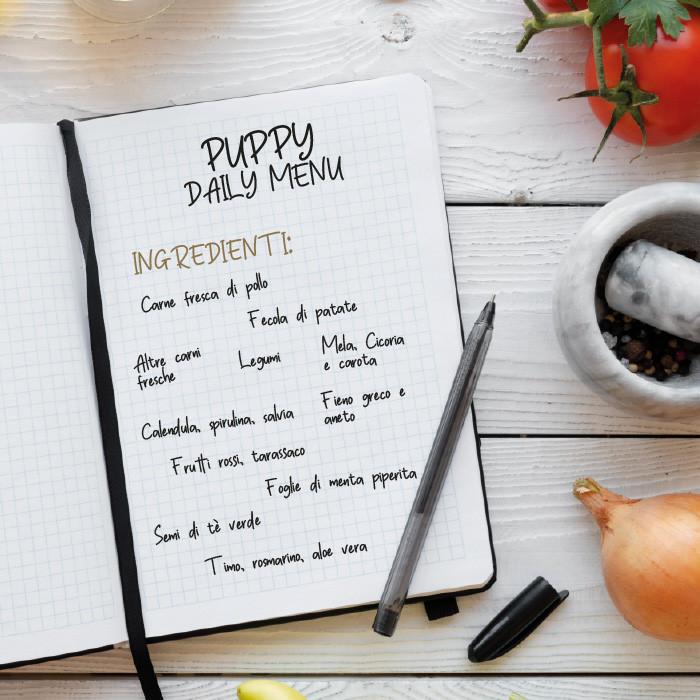 PUPPY
DAILY MENU
INGREDIENTI:
Carne fresca di pollo
Fecola di patate
Altre carni
fresche
Legumi
Mela, Cicoria
e carota
Calendula, spirulina, salvia
Fieno greco e
aneto
Frutti rossi, tarassaco
Foglie di menta piperita
Semi di tè verde
Timo, rosmarino, aloe vera